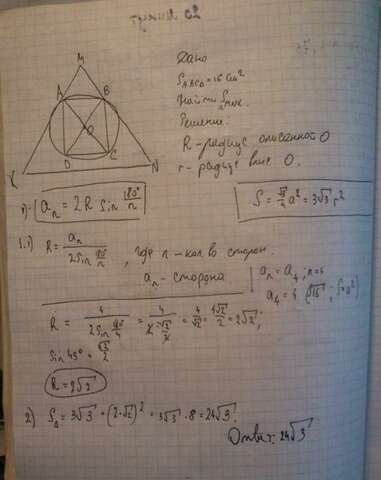 M
A B
O
D C
K N
Дано
S_ABCD = 16 см²
Найти S_MNK.
Решение:
R - радиус описанного O
r - радиус впис O.
a_n = 2R sin 180°/n
S = √3/4 a² = 3√3 r²
1.1) R = a_n / (2 sin 180°/n), где n - кол во сторон.
a_n - сторона.
a_n = a_4; n = 4
a_4 = 4 (√16, S = a²)
R = 4 / (2 sin 180°/4) = 4 / (2 · √2/2) = 4/√2 = 4√2/2 = 2√2;
sin 45° = √2/2
R = 2√2
2) S_Δ = 3√3 · (2·√2)² = 3√3 · 8 = 24√3.
Ответ: 24√3